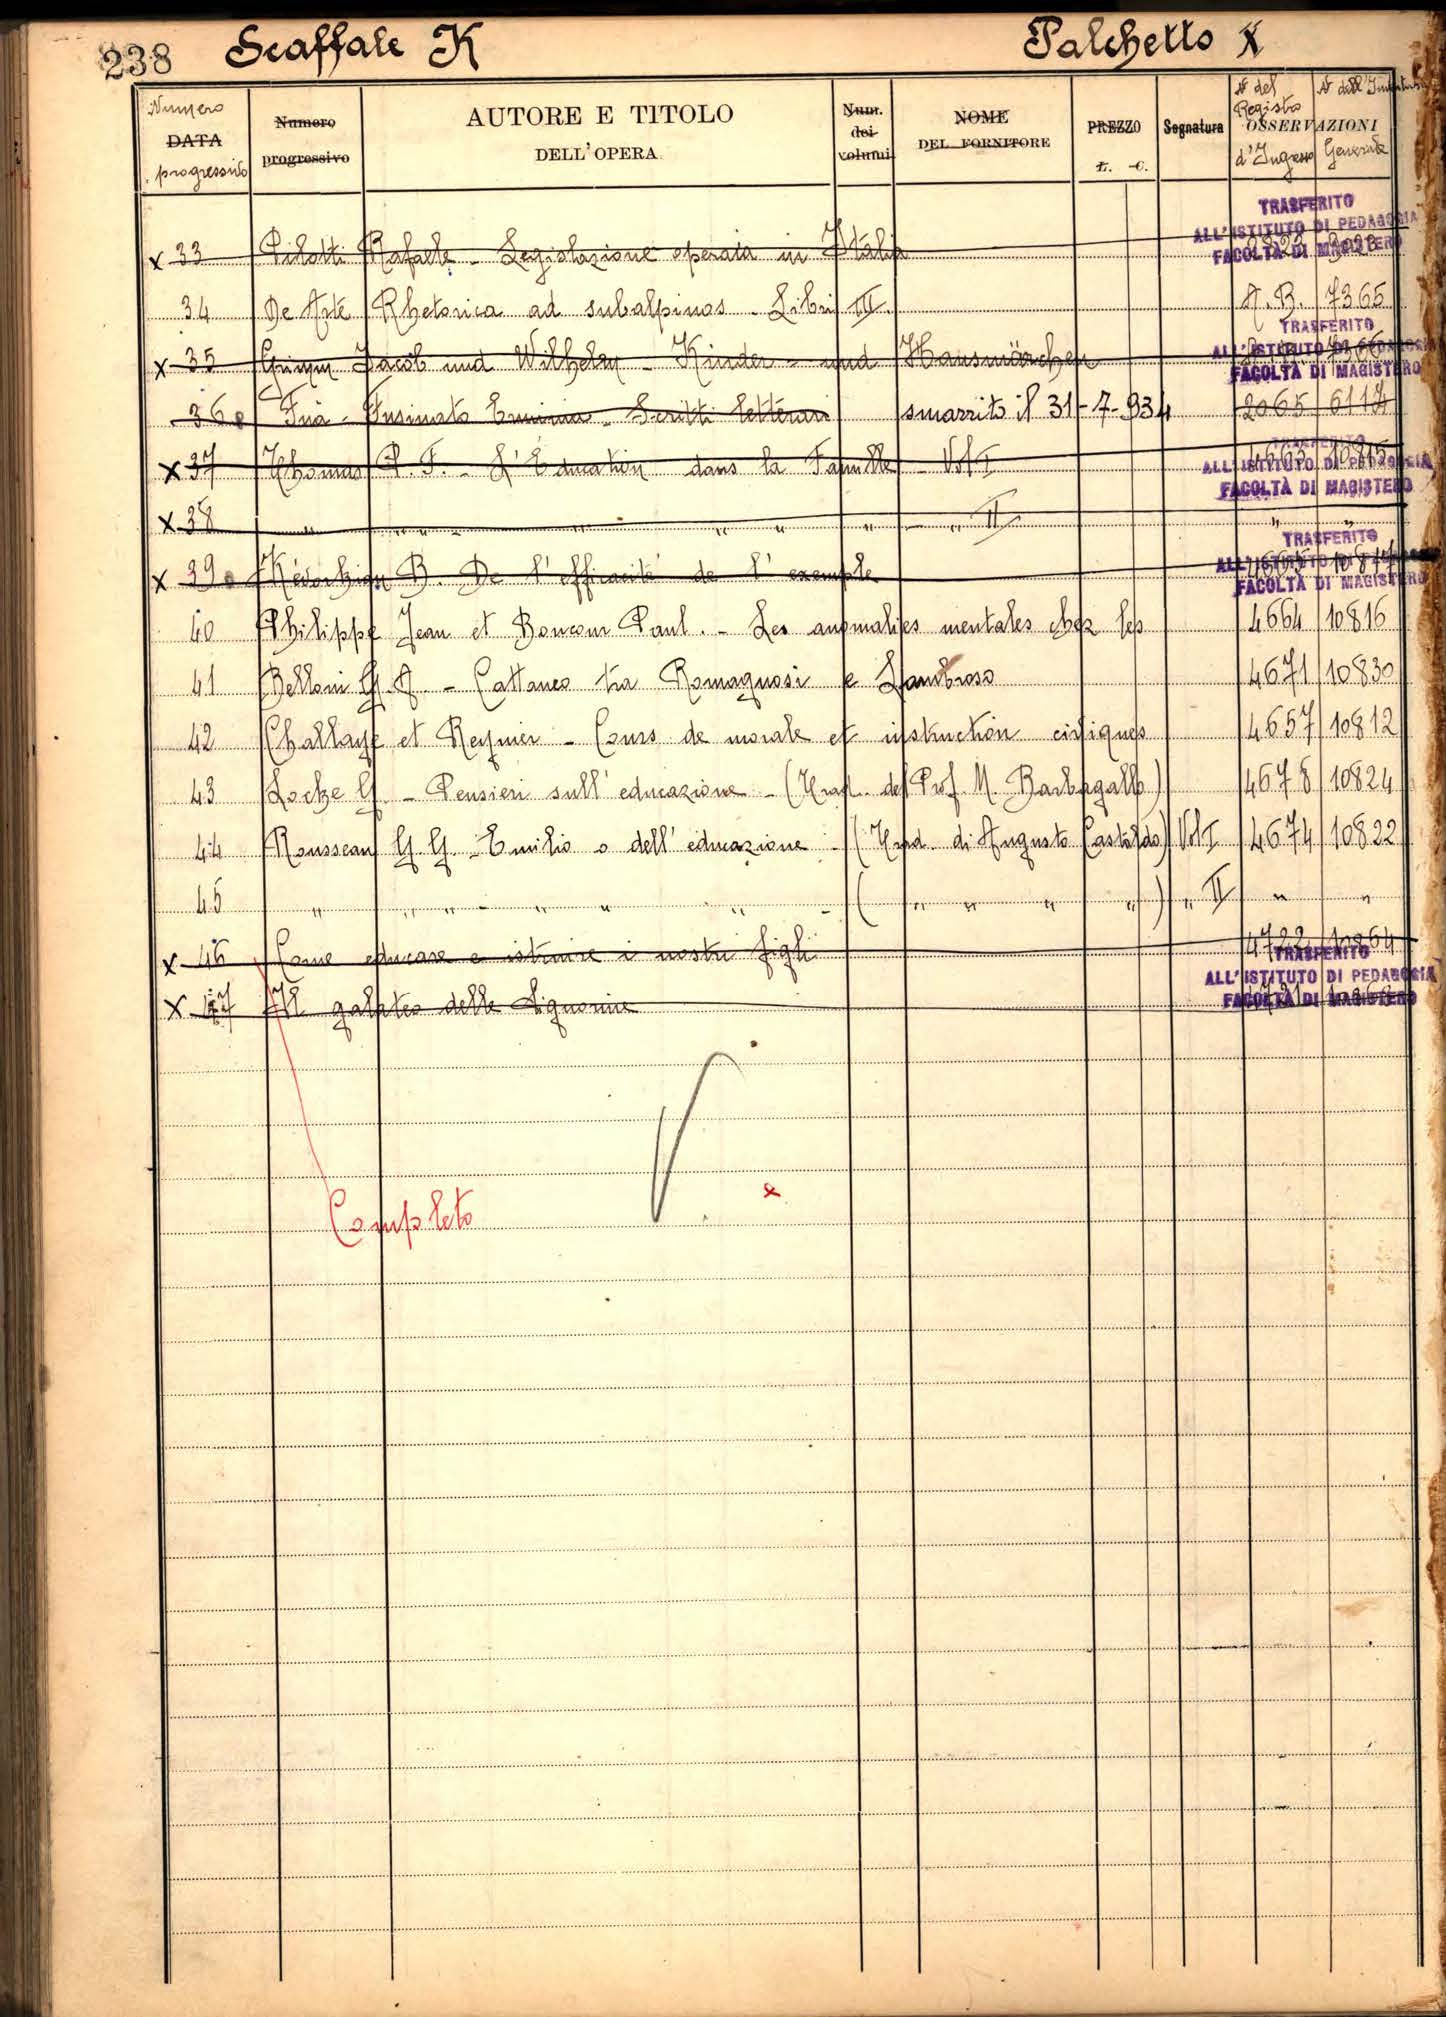 238 Scaffale K Palchetto X
Numero N° del N° dell'Inventario
DATA Numero AUTORE E TITOLO Num. NOME PREZZO Segnatura Registro
progressivo progressivo DELL'OPERA dei DEL FORNITORE OSSERVAZIONI
volumi L. C. d'Ingresso Generale
TRASFERITO
ALL'ISTITUTO DI PEDAGOGIA
FACOLTÀ DI MAGISTERO
x 33 Pilotti Rafaele - Legislazione operaia in Italia
34 De Arte Rhetorica ad subalpinos - Libri III. A.B. 7365
TRASFERITO
ALL'ISTITUTO DI PEDAGOGIA
FACOLTÀ DI MAGISTERO
x 35 Grimm Jacob und Wilhelm - Kinder - und Hausmärchen
36 Fuà - Fusinato Erminia - Scritti letterari smarrito il 31-7-934 2065 6117
TRASFERITO
ALL'ISTITUTO DI PEDAGOGIA
FACOLTÀ DI MAGISTERO
x 37 Thomas P. F. - L'Éducation dans la Famille - Vol I 4663 10815
x 38 " " " - " " " " - " II " "
TRASFERITO
ALL'ISTITUTO DI PEDAGOGIA
FACOLTÀ DI MAGISTERO
x 39 Kévorkian B. De l'efficacité de l'exemple
40 Philippe Jean et Boncour Paul. - Les anomalies mentales chez les 4664 10816
41 Belloni G. A. - Cattaneo tra Romagnosi e Lombroso 4671 10830
42 Challaye et Reynier - Cours de morale et instruction civiques 4657 10812
43 Locke G. - Pensieri sull'educazione - (Trad. del Prof. M. Barbagallo) 4678 10824
44 Rousseau G. G. - Emilio o dell'educazione - (Trad. di Augusto Castaldo) Vol I 4674 10822
45 " " " - " " " - ( " " " " ) " II " "
x 46 Come educare e istruire i nostri figli 4722 10864
TRASFERITO
ALL'ISTITUTO DI PEDAGOGIA
FACOLTÀ DI MAGISTERO
x 47 Il galateo delle Signorine
Completo